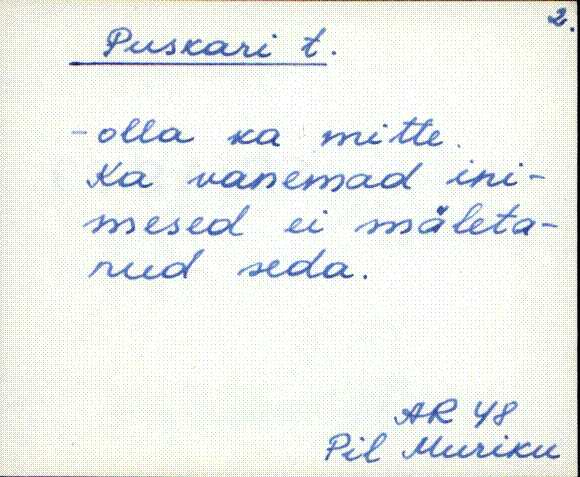 2.
Puskari t.
-olla ka mitte.
Ka vanemad ini-
mesed ei mäleta-
nud seda.
AR 48
Pil Muriku